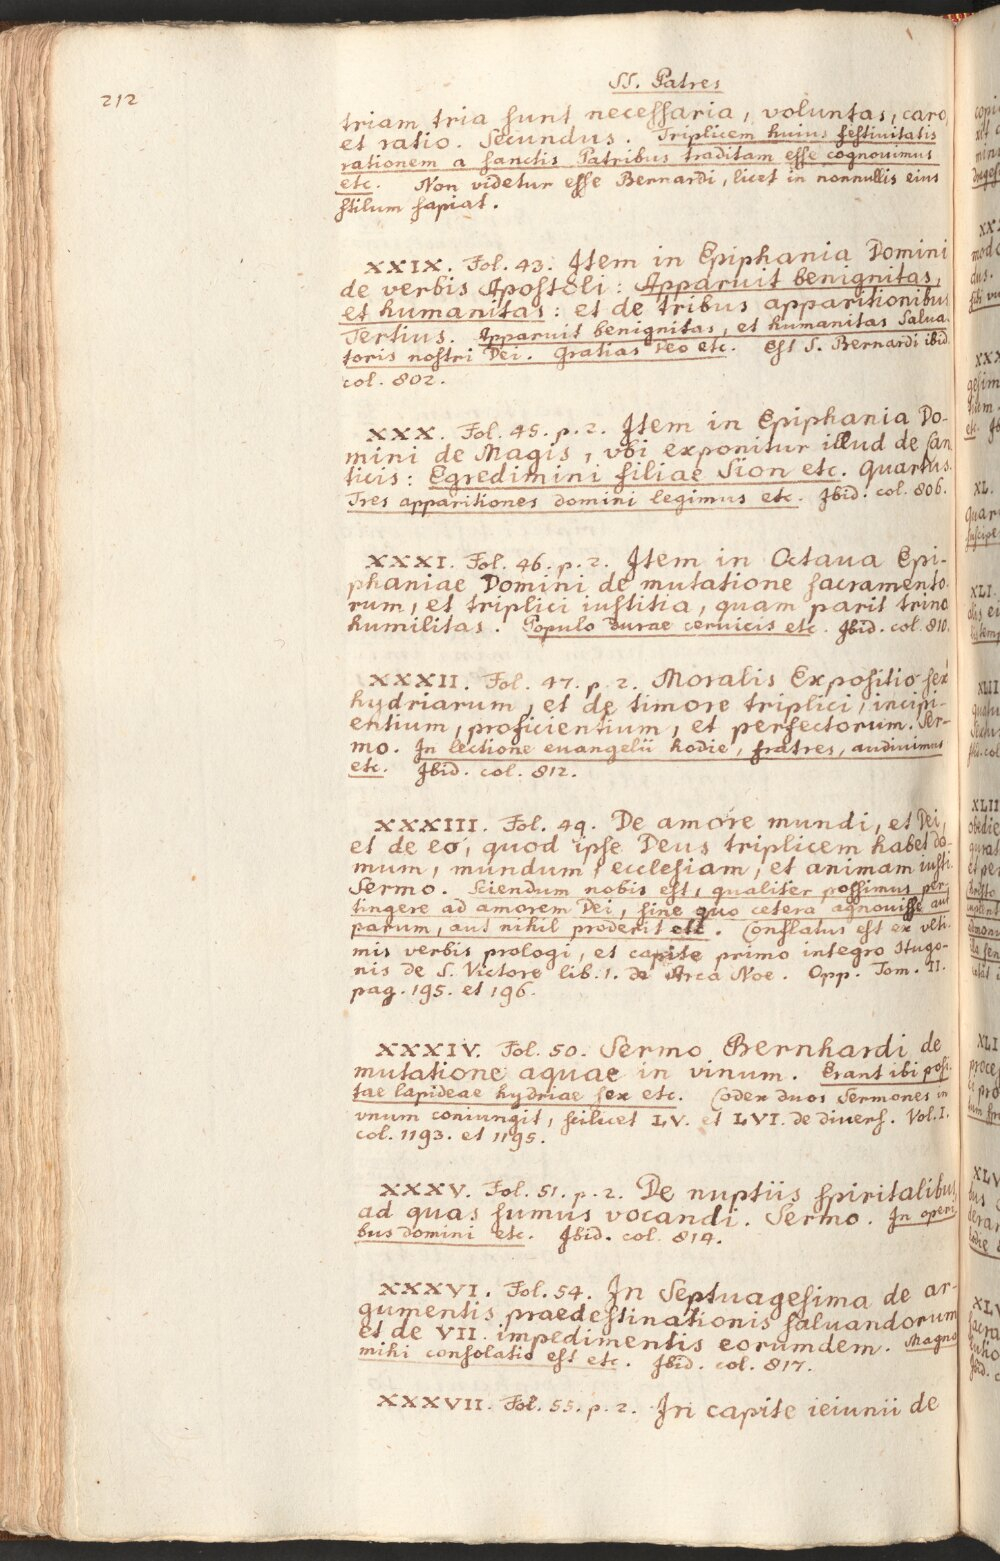 212
SS. Patres
triam tria sunt necessaria, voluntas, caro
et ratio. Secundus. Triplicem huius festiuitatis
rationem a sanctis Patribus traditam esse cognouimus
etc. Non videtur esse Bernardi, licet in nonnullis eius
stilum sapiat.
XXIX. Fol. 43. Item in Epiphania Domini
de verbis Apostoli: Apparuit benignitas,
et humanitas: et de tribus apparitionibus
Tertius. Apparuit benignitas, et humanitas Salua-
toris nostri Dei. Gratias Deo etc. Est S. Bernardi ibid.
col. 802.
XXX. Fol. 45. p. 2. Item in Epiphania Do-
mini de Magis, vbi exponitur illud de Can
ticis: Egredimini filiae Sion etc. Quartus.
Tres apparitiones domini legimus etc. Ibid. col. 806.
XXXI. Fol. 46. p. 2. Item in Octaua Epi-
phaniae Domini de mutatione sacramento-
rum, et triplici iustitia, quam parit trina
humilitas. Populo durae ceruicis etc. Ibid. col. 810.
XXXII. Fol. 47. p. 2. Moralis Expositio sex
hydriarum, et de timore triplici, incipi-
entium, proficientium, et perfectorum. Ser-
mo. In lectione euangelii hodie, fratres, audiuimus
etc. Ibid. col. 812.
XXXIII. Fol. 49. De amore mundi, et Dei,
et de eo, quod ipse Deus triplicem habet do-
mum, mundum, ecclesiam, et animam iusti.
Sermo. Sciendum nobis est, qualiter possimus per-
tingere ad amorem Dei, sine quo cetera agnouisse aut
parum, aut nihil proderit etc. Conflatus est ex vlti-
mis verbis prologi, et capite primo integro Hugo-
nis de S. Victore lib. 1. de Arca Noe. Opp. Tom. II.
pag. 195. et 196.
XXXIV. Fol. 50. Sermo Bernhardi de
mutatione aquae in vinum. Erant ibi posi-
tae lapideae hydriae sex etc. Codex duos Sermones in
vnum coniungit, scilicet LV. et LVI. de diuers. Vol. I.
col. 1193. et 1195.
XXXV. Fol. 51. p. 2. De nuptiis spiritalibus
ad quas sumus vocandi. Sermo. In operi
bus domini etc. Ibid. col. 814.
XXXVI. Fol. 54. In Septuagesima de ar-
gumentis praedestinationis saluandorum
et de VII. impedimentis eorumdem. Magna
mihi consolatio est etc. Ibid. col. 817.
XXXVII. Fol. 55. p. 2. In capite ieiunii de